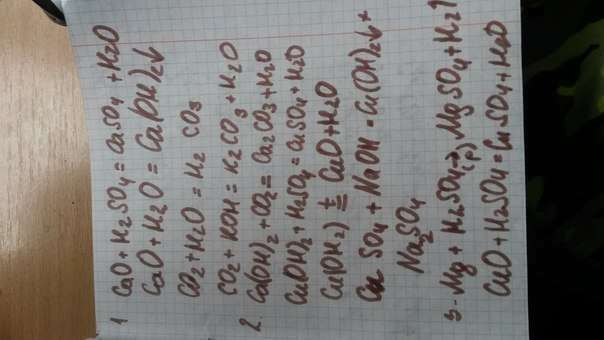 1 CaO + H2SO4 = CaSO4 + H2O
CaO + H2O = Ca(OH)2↓
CO2 + H2O = H2CO3
CO2 + KOH = K2CO3 + H2O
2. Ca(OH)2 + CO2 = Ca2CO3 + H2O
Cu(OH)2 + H2SO4 = CuSO4 + H2O
Cu(OH2) t= CuO + H2O
Cu SO4 + NaOH = Cu(OH)2↓ +
Na2SO4
3 - Mg + H2SO4(p) → MgSO4 + H2↑
CuO + H2SO4 = CuSO4 + H2O